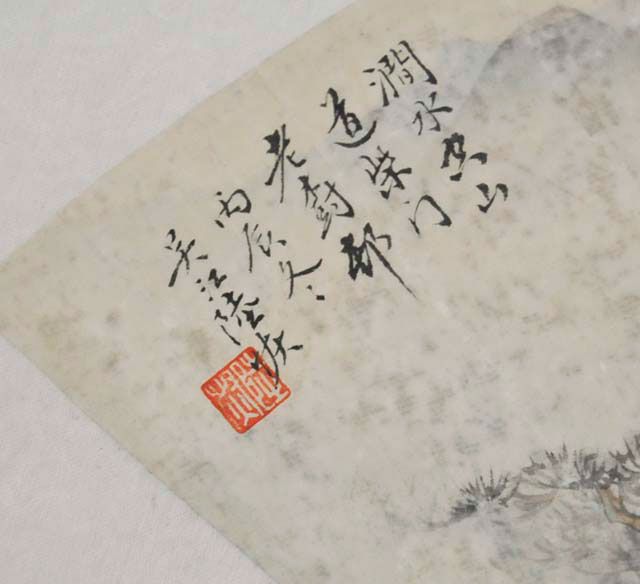 澗水空山
道柴門
老樹邨
丙辰冬
吳江陸恢